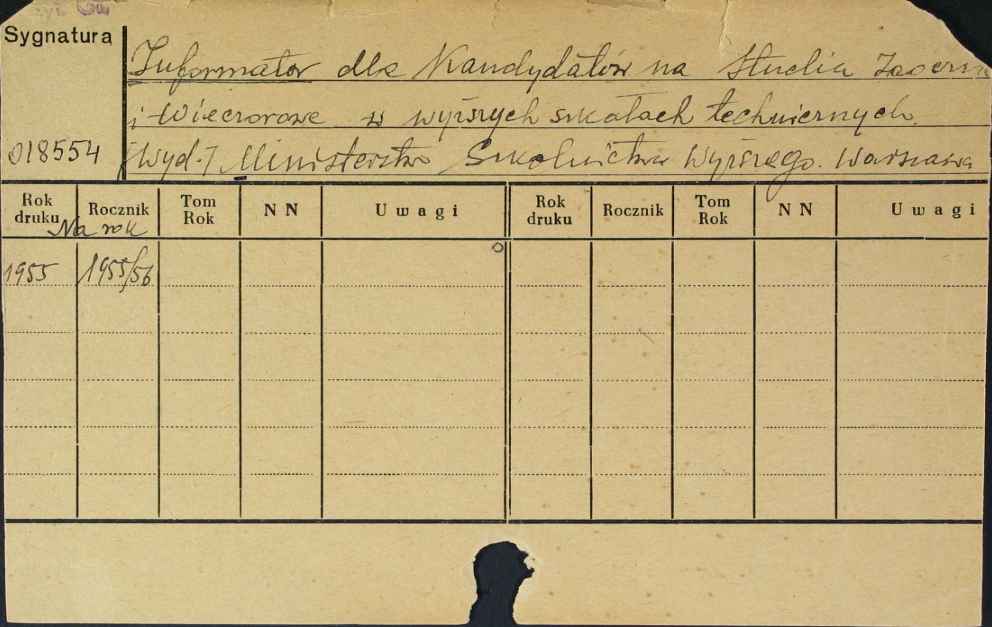 Sygnatura
Informator dla Kandydatów na Studia Zaoczne
i Wieczorowe w wyższych szkołach technicznych.
018554
[Wyd.] Ministerstwo Szkolnictwa Wyższego. Warszawa
Rok druku Rocznik Tom Rok NN Uwagi Rok druku Rocznik Tom Rok NN Uwagi
Na rok
1955 1955/56